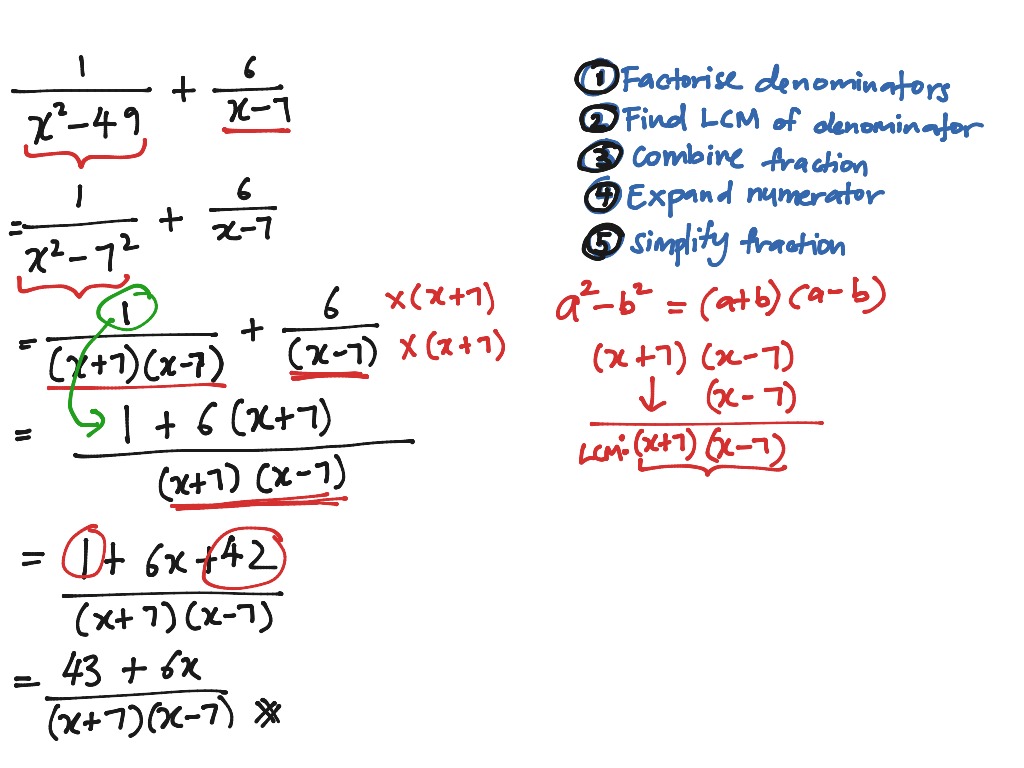 1/(x² - 49) + 6/(x - 7)
= 1/(x² - 7²) + 6/(x - 7)
= 1/((x+7)(x-7)) + 6/(x-7) ×(x+7) ×(x+7)
= (1 + 6(x+7))/((x+7)(x-7))
= (1 + 6x + 42)/((x+7)(x-7))
= (43 + 6x)/((x+7)(x-7))
① Factorise denominators
② Find LCM of denominator
③ Combine fraction
④ Expand numerator
⑤ Simplify fraction
a² - b² = (a+b)(a-b)
(x+7)(x-7)
↓ (x-7)
LCM: (x+7)(x-7)